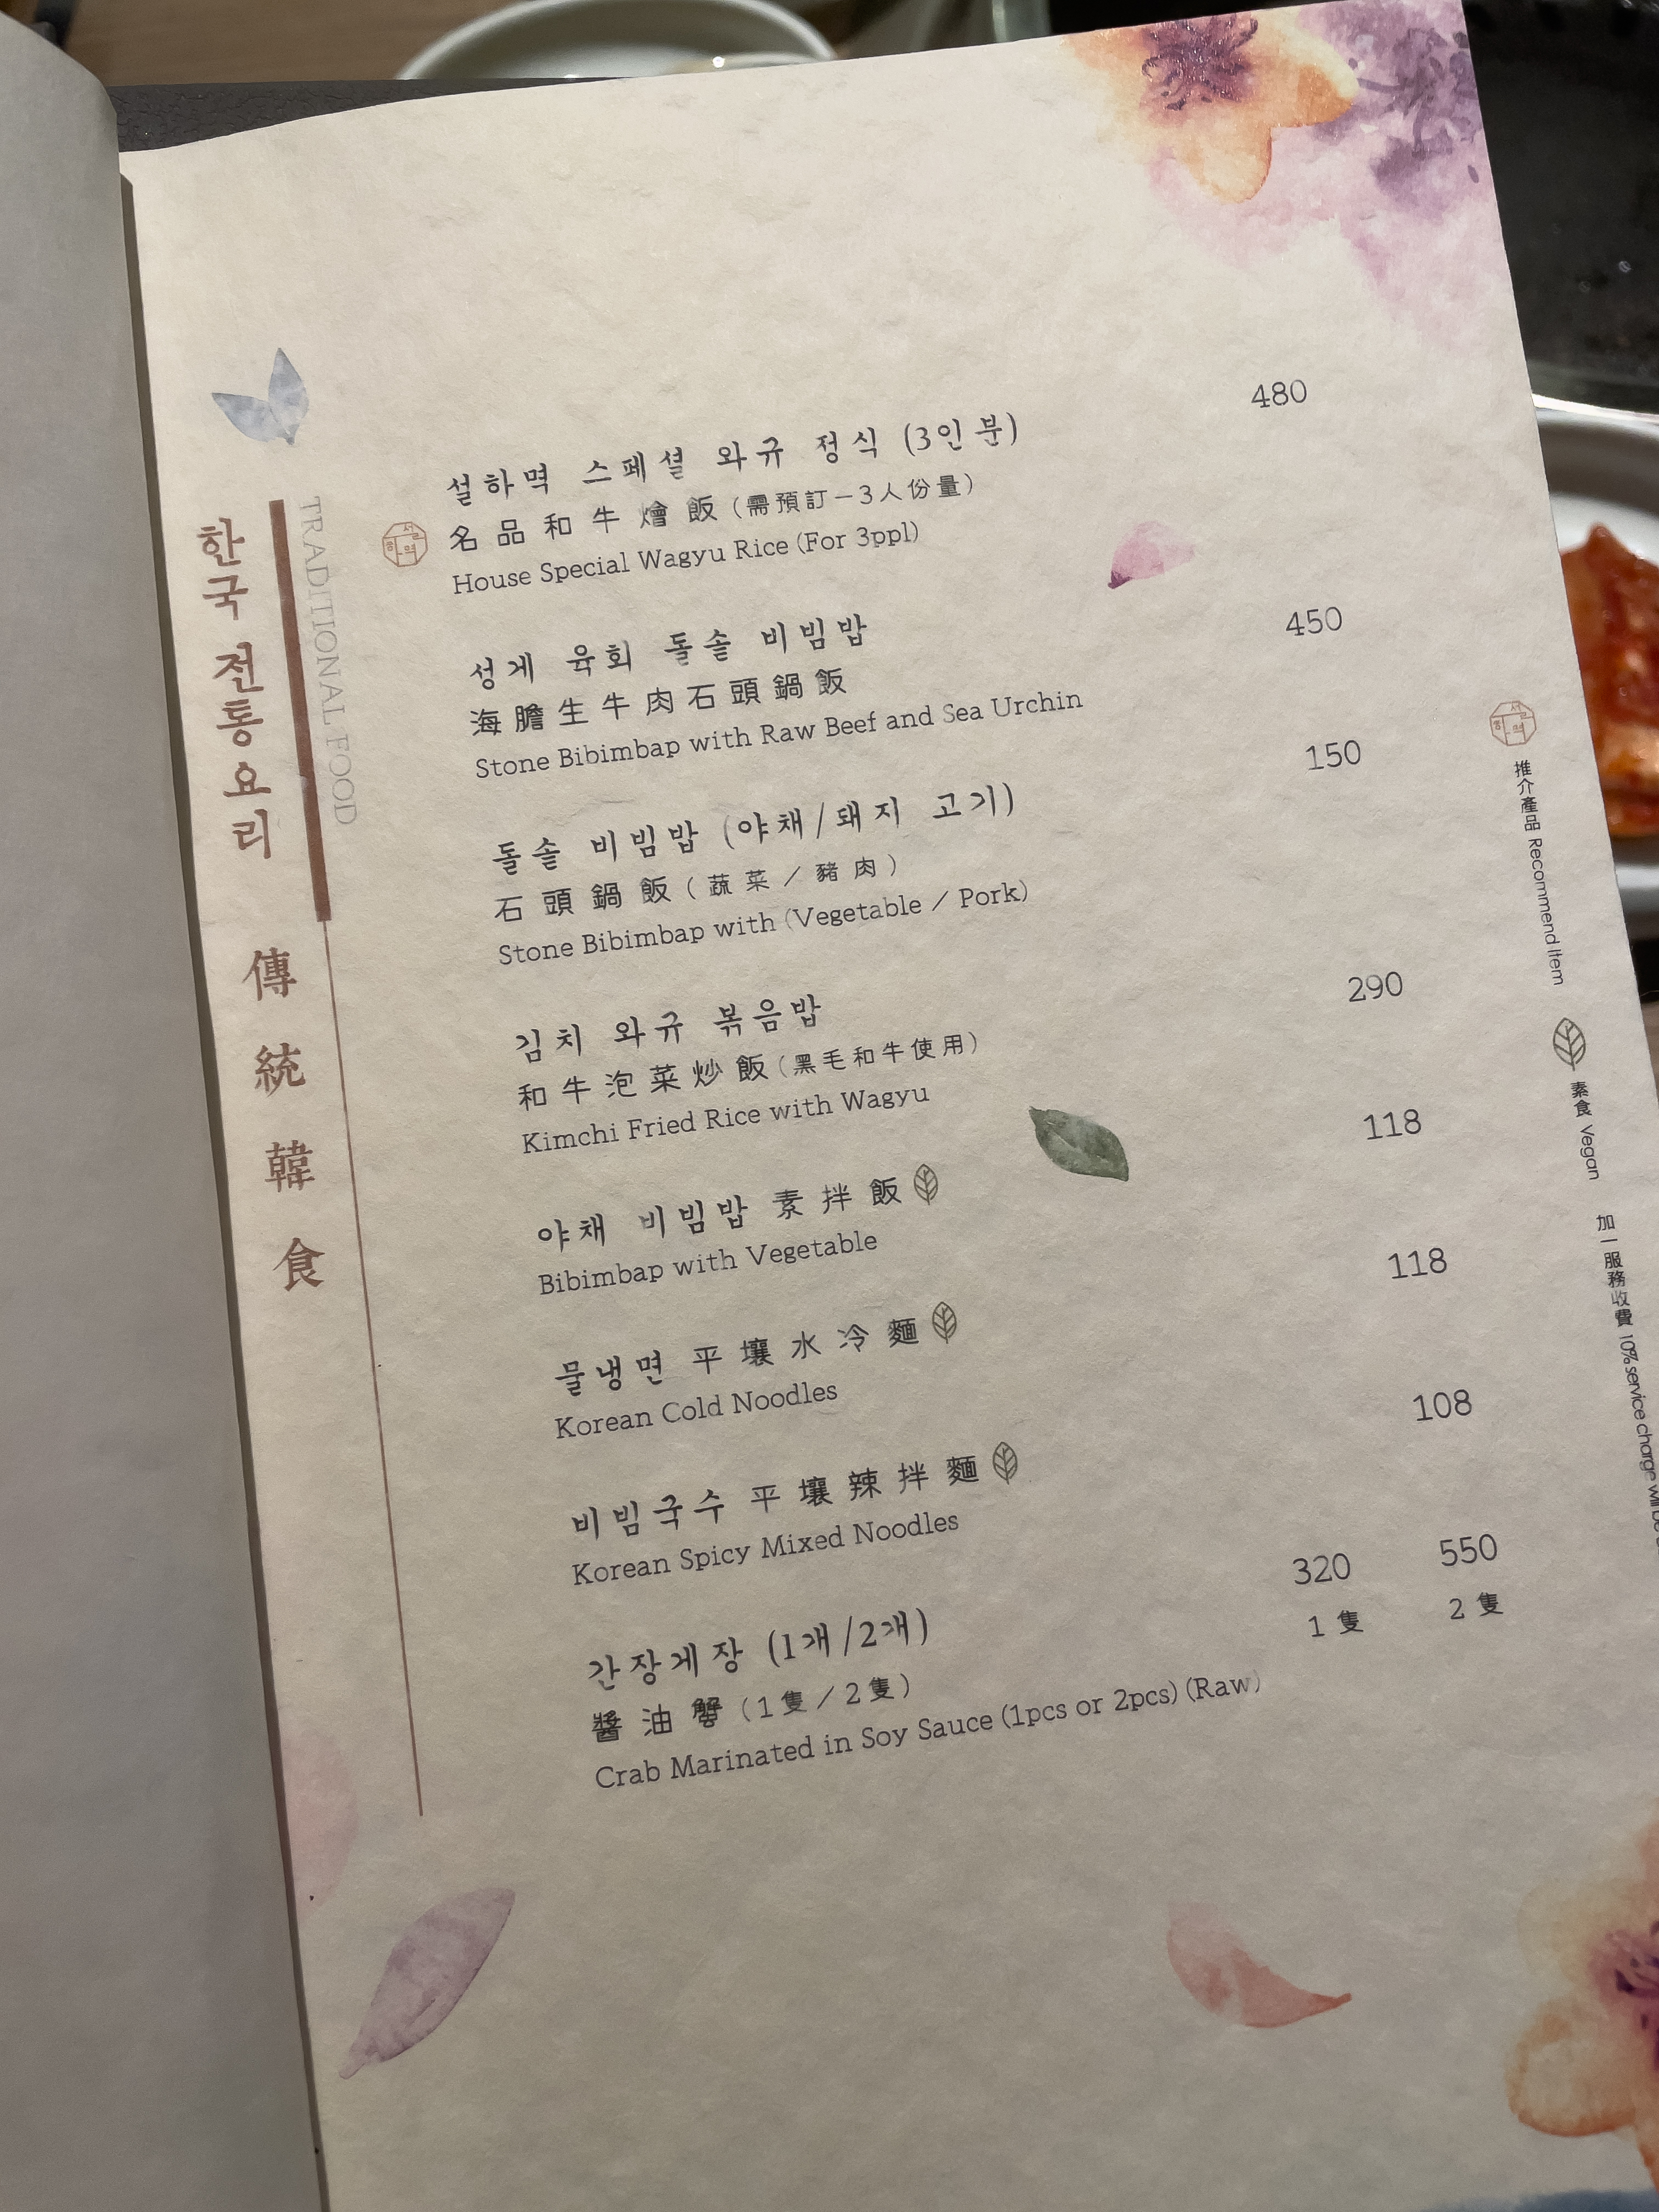 한국 전통요리
TRADITIONAL FOOD
傳統韓食
설하멱 스페셜 와규 정식 (3인분)
480
名品和牛燴飯(需預訂－3人份量)
House Special Wagyu Rice (For 3ppl)
성게 육회 돌솥 비빔밥
450
海膽生牛肉石頭鍋飯
Stone Bibimbap with Raw Beef and Sea Urchin
돌솥 비빔밥 (야채/돼지 고기)
150
石頭鍋飯(蔬菜／豬肉)
Stone Bibimbap with (Vegetable / Pork)
김치 와규 볶음밥
290
和牛泡菜炒飯(黑毛和牛使用)
Kimchi Fried Rice with Wagyu
야채 비빔밥 素拌飯
118
Bibimbap with Vegetable
물냉면 平壤水冷麵
118
Korean Cold Noodles
비빔국수 平壤辣拌麵
108
Korean Spicy Mixed Noodles
간장게장 (1개/2개)
320 550
1隻 2隻
醬油蟹(1隻／2隻)
Crab Marinated in Soy Sauce (1pcs or 2pcs) (Raw)
설하멱
推介產品 Recommend Item
素食 Vegan
加一服務收費 10% service charge will be